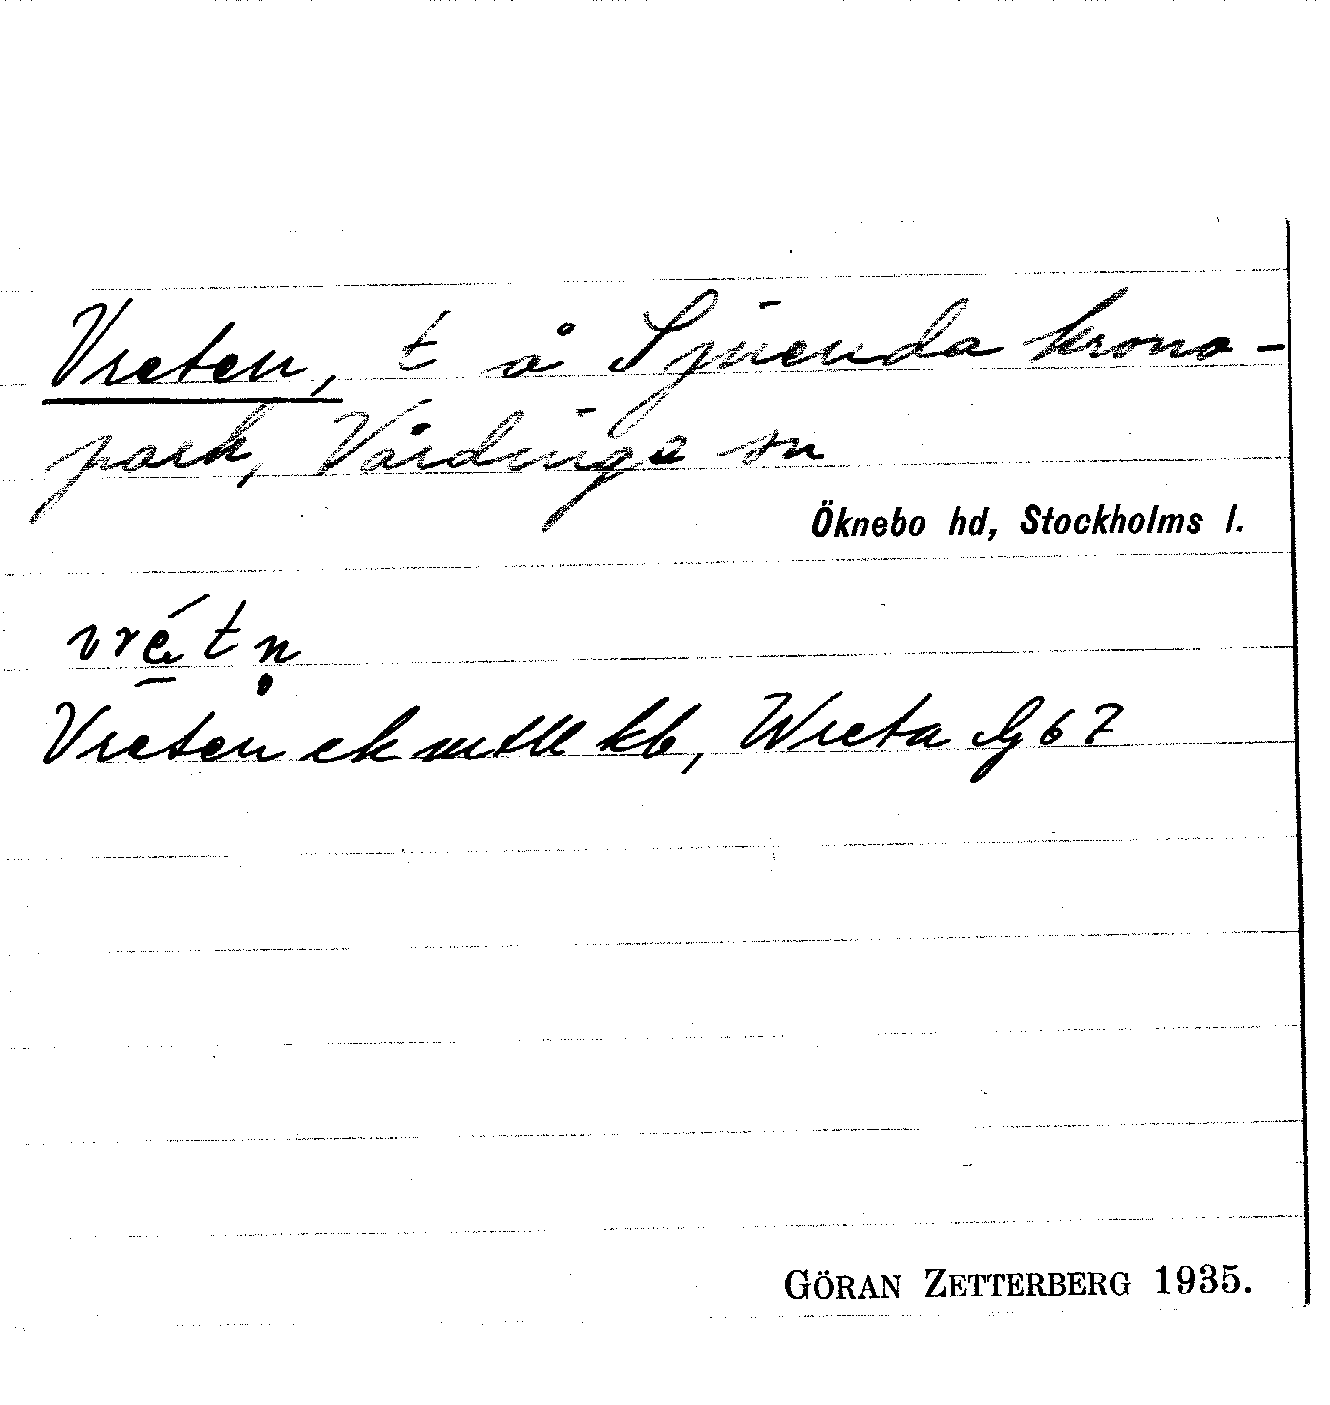 Vreten, t å Sjuenda krono-
park, Vårdinga sn
Öknebo hd, Stockholms l.
vrétn̥
Vreten ek mtll kb, Wreta Jg 67
GÖRAN ZETTERBERG 1935.